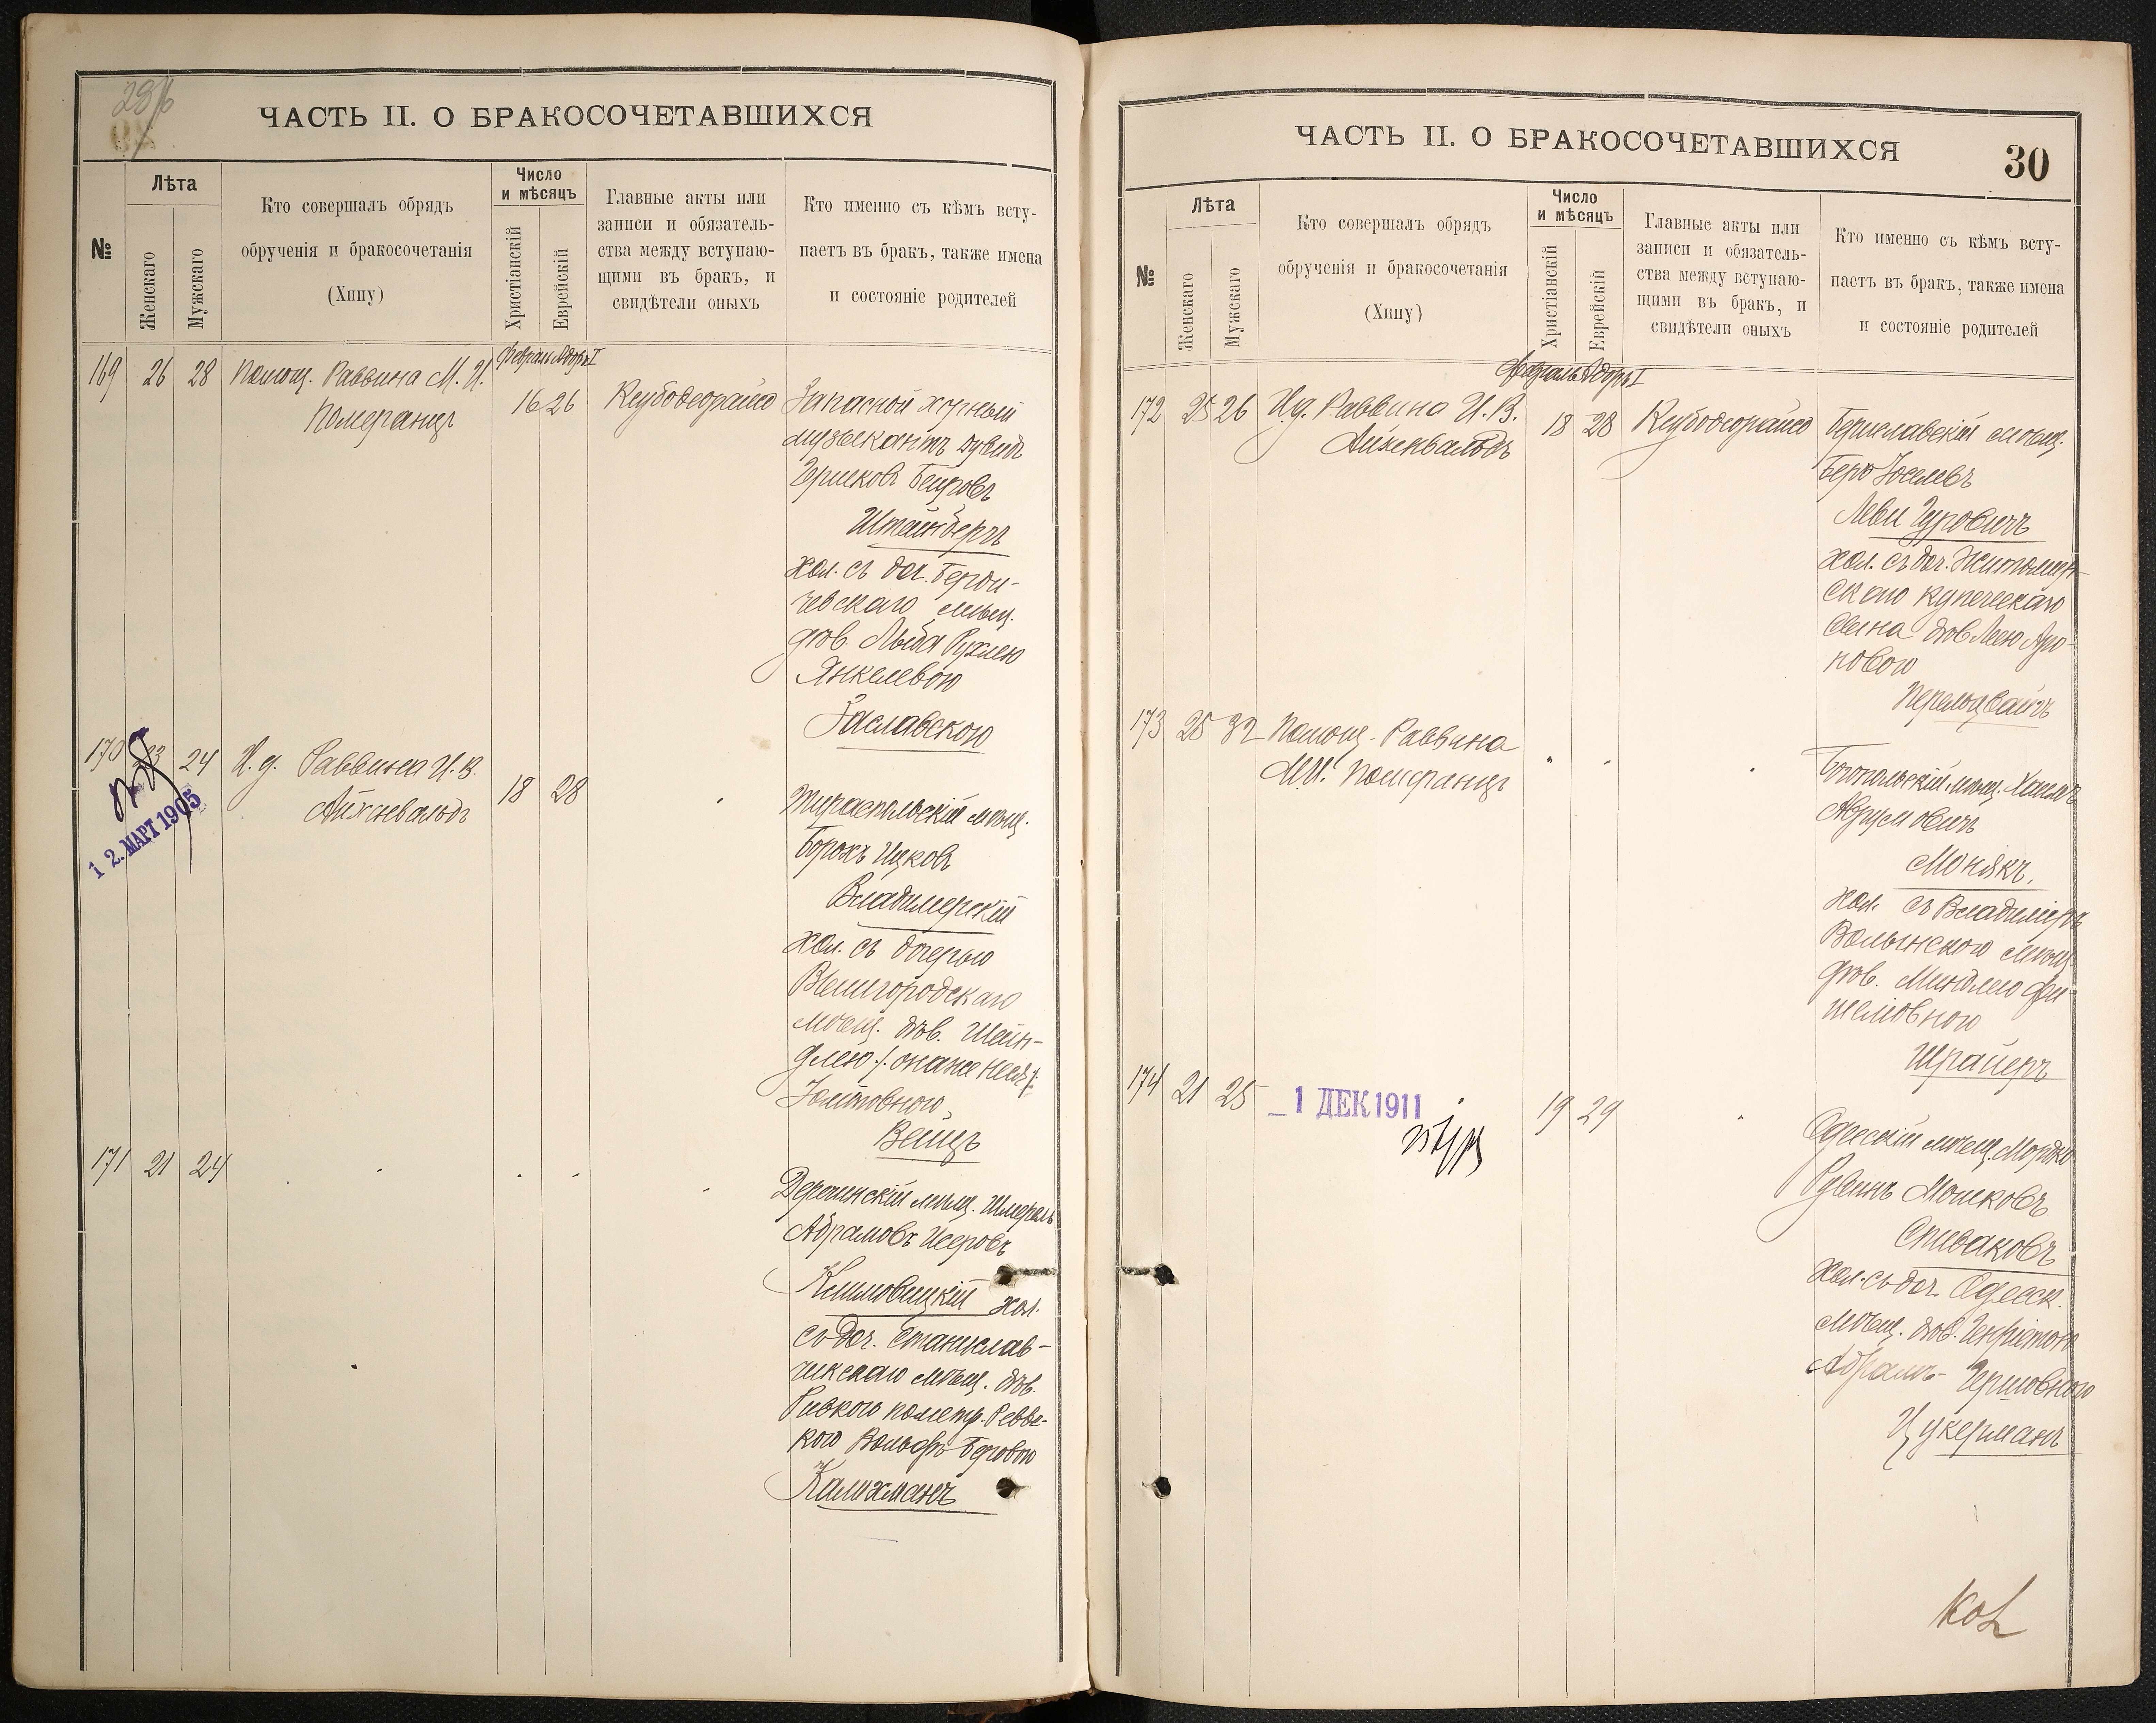 ЧАСТЬ II. О БРАКОСОЧЕТАВШИХСЯ
№
Лѣта
Женскаго
Мужскаго
Кто совершалъ обрядъ
обрученія и бракосочетанія
(Хипу)
Число
и мѣсяцъ
Христіанскій
Еврейскій
Главные акты или
записи и обязатель-
ства между вступаю-
щими въ бракъ, и
свидѣтели оныхъ
Кто именно съ кѣмъ всту-
паетъ въ бракъ, также имена
и состояніе родителей
Февраль Адоръ I
169 26 28 Помощ. Раввина М. И.
Померанцъ
16 26
Запасной хорный
музыкантъ Дувидъ
Гершковъ Беировъ
Штейнбергъ
хол. съ доч. Берди-
чевскаго мѣщ.
дѣв. Рухлею
Янкелевою
Заславскою
170 23 24 И. д. Раввина И. В.
Айхенвальдъ
18 28
12. МАРТ 1905
Тираспольскій мѣщ.
Борохъ Ицковъ
Владимерскій
хол. съ дочерью
Вышгородскаго
мѣщ. дѣв. Шейн-
длею /: онаже :/
Вейцъ
171 21 24
мѣщ. Шмераль
Абрамовъ Исеровъ
Климовицкій хол.
съ доч. Станислав-
чикскаго мѣщ. дѣв.
Ривкою по метр. Ревве-
кою Вольфъ-Беровою
Калихманъ
ЧАСТЬ II. О БРАКОСОЧЕТАВШИХСЯ
30
№
Лѣта
Женскаго
Мужскаго
Кто совершалъ обрядъ
обрученія и бракосочетанія
(Хипу)
Число
и мѣсяцъ
Христіанскій
Еврейскій
Главные акты или
записи и обязатель-
ства между вступаю-
щими въ бракъ, и
свидѣтели оныхъ
Кто именно съ кѣмъ всту-
паетъ въ бракъ, также имена
и состояніе родителей
Февраль Адоръ I
172 25 26 И.д. Раввина И. В.
Айхенвальдъ
18 28
Бериславскій мѣщ.
Беръ Іоселевъ
Леви Гуровичъ
хол. съ доч. Житомир-
скаго купеческаго
сына дѣв. Леею Аро-
новою
Перельцвайгъ
173 25 32 Помощ. Раввина
М.И. Померанцъ
Богопольскій мѣщ. Хаимъ
Аврумовичъ
Монякъ.
хол. съ Владиміръ
Волынскаго мѣщ.
дѣв. Миндлею Фи-
шелювною
Шрайеръ
174 21 25
1 ДЕК 1911
19 29
Одесскій мѣщ. Мордко
Рувинъ Мошковъ
Спиваковъ
хол. съ доч. Одесск.
мѣщ. дѣв. Генріетою
Абрамъ-Гершовною
Цукерманъ